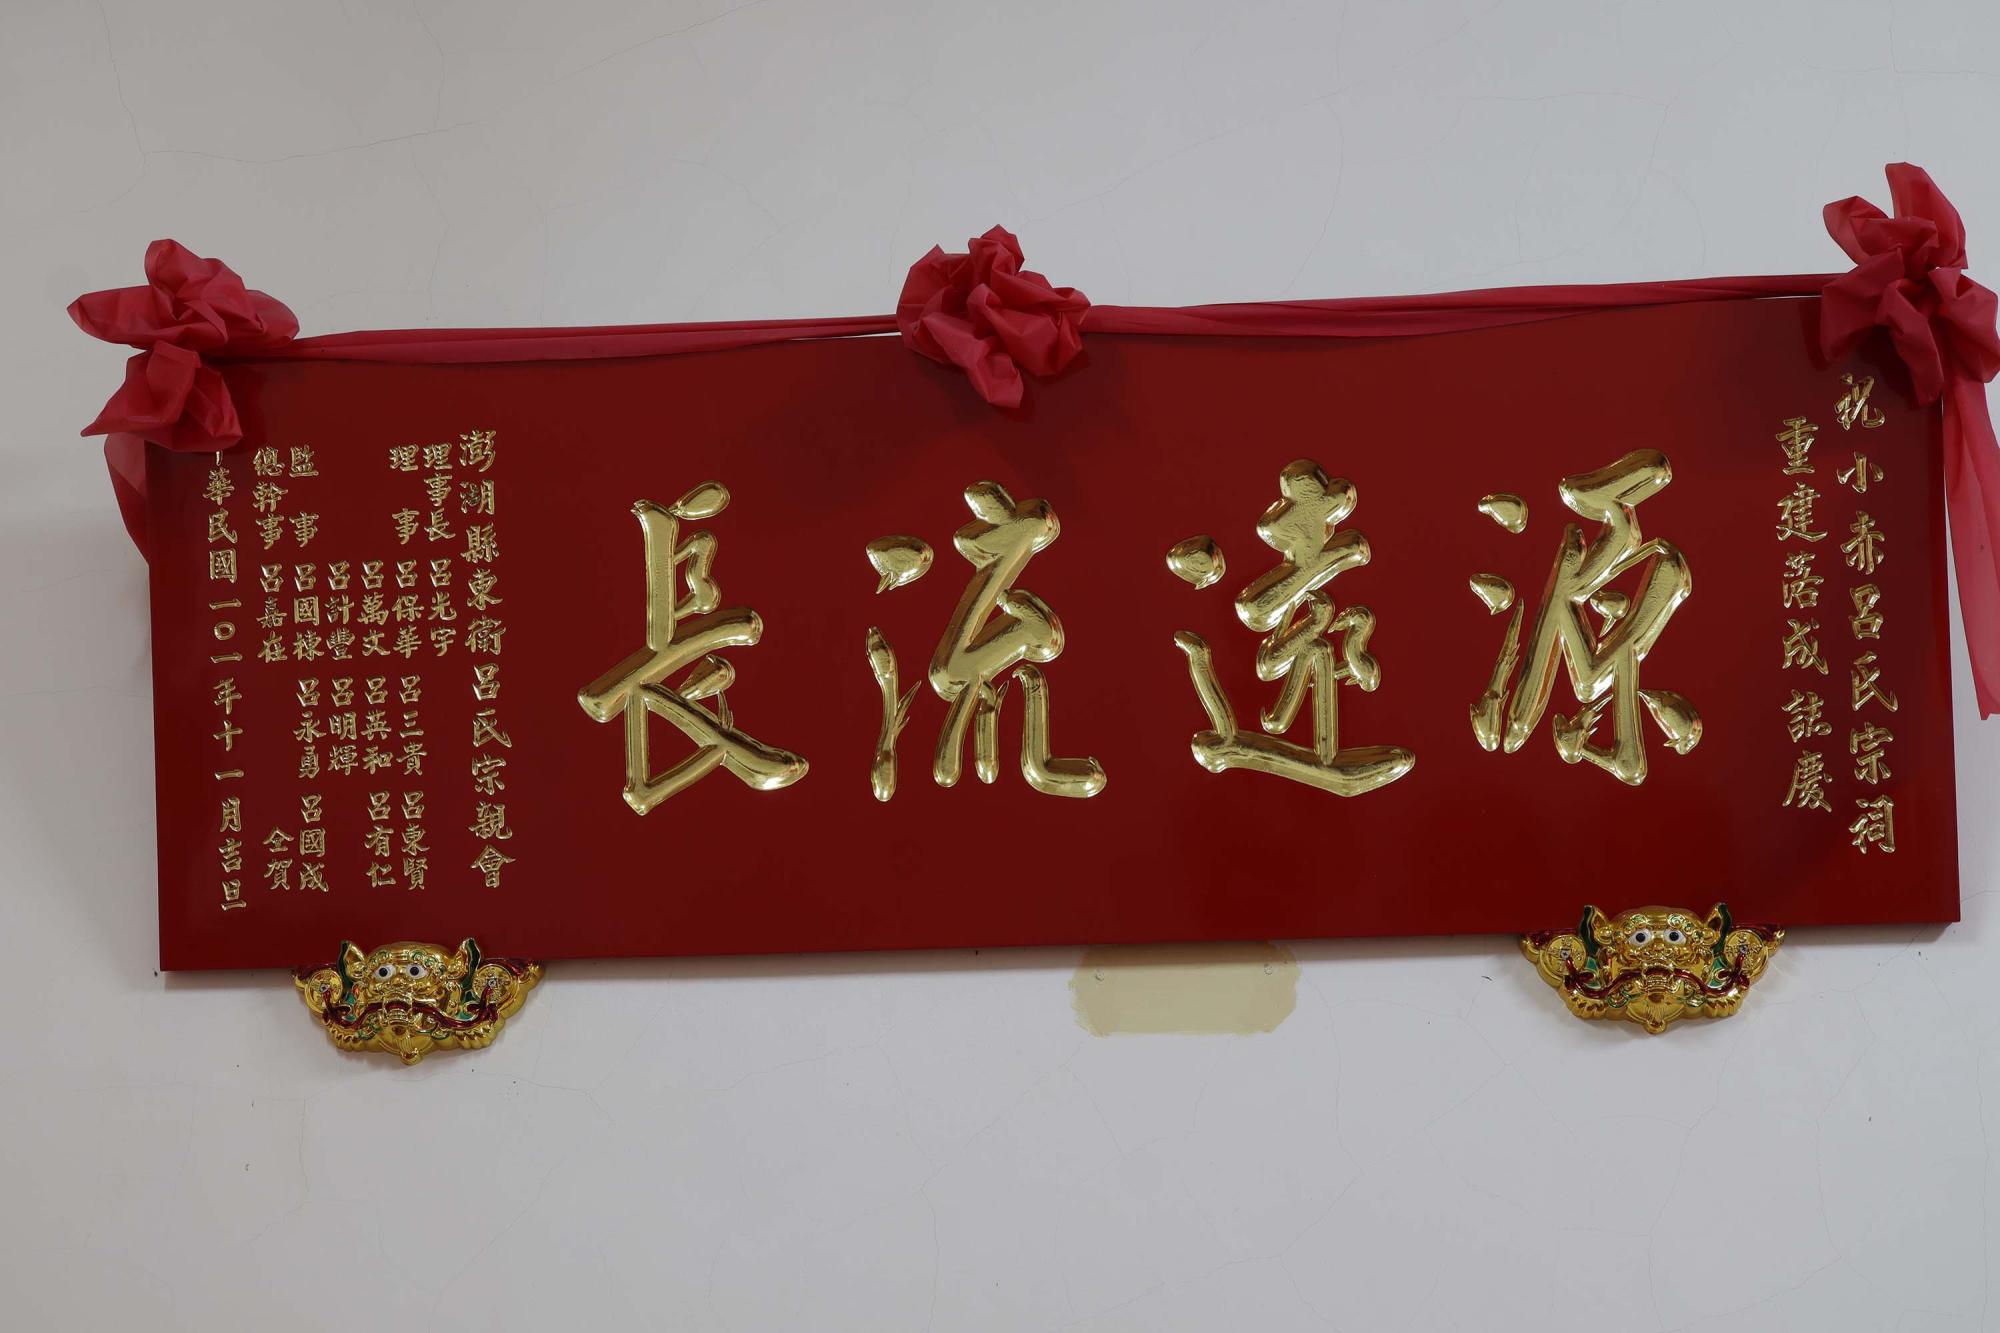 祝小赤呂氏宗祠
重建落成誌慶
源遠流長
澎湖縣東衛呂氏宗親會
理事長 呂光宇
理事 呂保華 呂三貴 呂東賢
呂萬文 呂英和 呂有仁
呂計豐 呂明輝
監事 呂國棟 呂永勇 呂國成
總幹事 呂嘉在 仝賀
中華民國一〇一年十一月吉旦